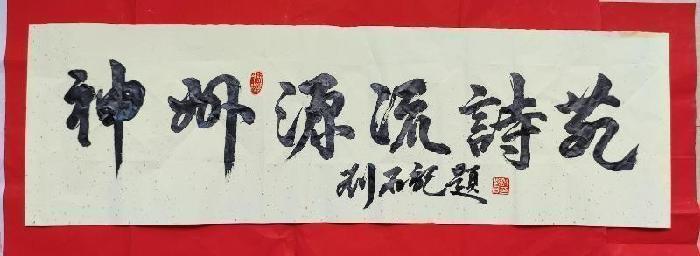 神州源流詩苑
刘石龍題